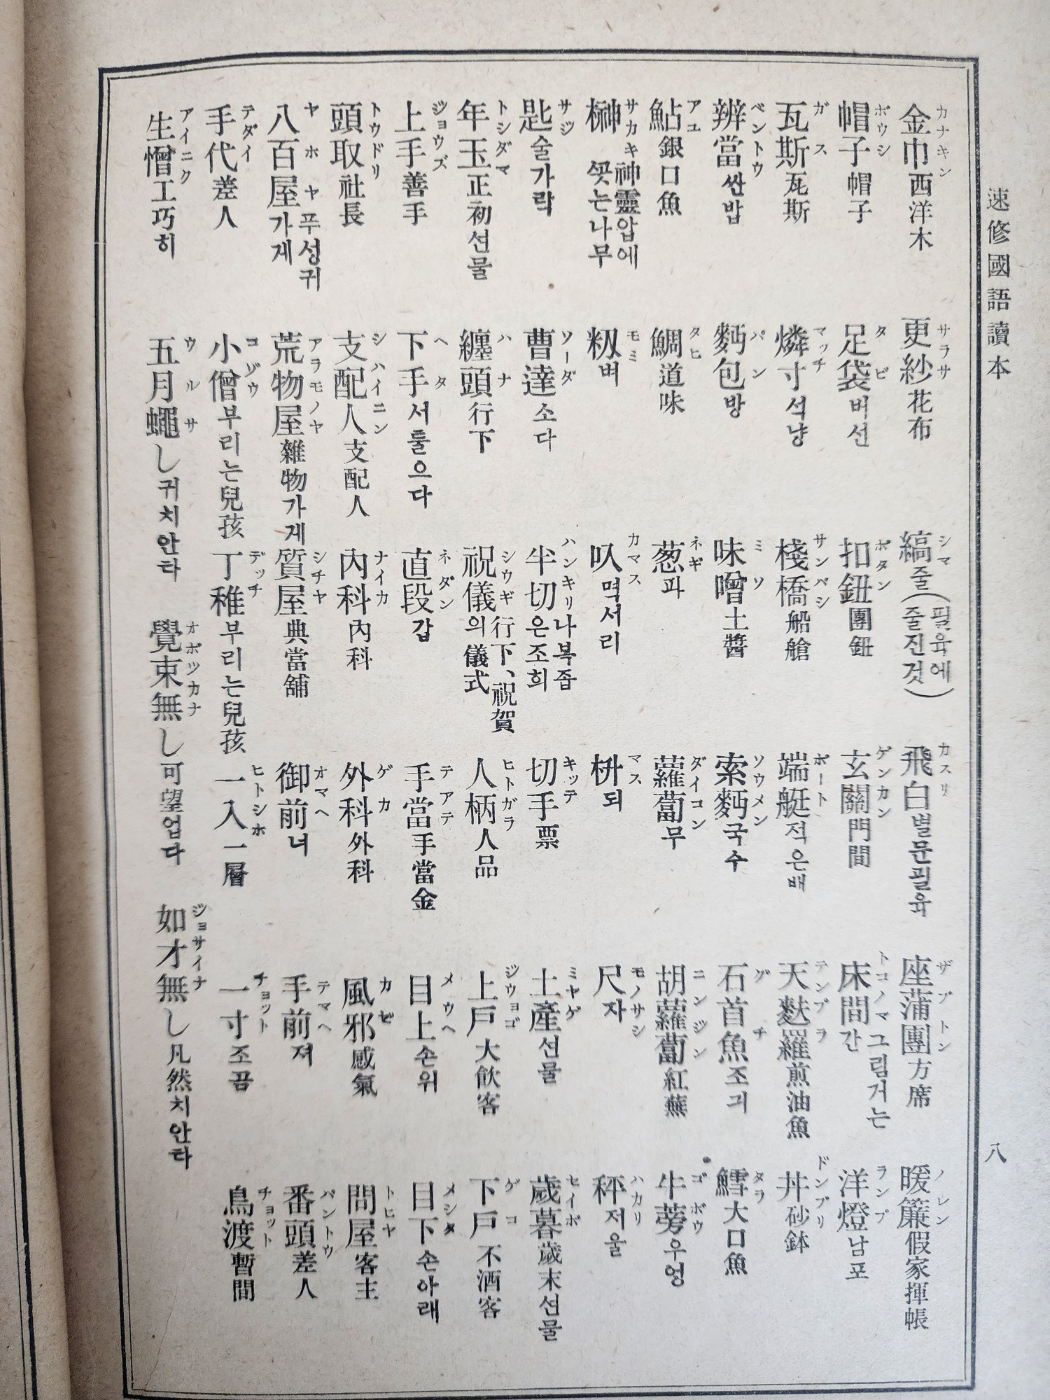 速修國語讀本
八
金巾 カナキン 西洋木
更紗 サラサ 花布
縞 シマ 줄(필육에줄진것)
飛白 カスリ 별문필육
座蒲團 ザブトン 方席
暖簾 ノレン 假家揮帳
帽子 ボウシ 帽子
足袋 タビ 버선
扣鈕 ボタン 團鈕
玄關 ゲンカン 門間
床間 トコノマ 그림거는간
洋燈 ランプ 남포
瓦斯 ガス 瓦斯
燐寸 マッチ 석냥
棧橋 サンバシ 船艙
端艇 ボート 적은배
天麩羅 テンプラ 煎油魚
丼 ドンブリ 砂鉢
辨當 ベントウ 싼밥
麪包 パン 방
味噌 ミソ 土醬
索麪 ソウメン 국수
石首魚 グチ 조긔
鱈 タラ 大口魚
鮎 アユ 銀口魚
鯛 タヒ 道味
葱 ネギ 파
蘿蔔 ダイコン 무
胡蘿蔔 ニンジン 紅蕪
牛蒡 ゴボウ 우엉
榊 サカキ 神靈압에꼿는나무
籾 モミ 벼
叺 カマス 먹서리
枡 マス 되
尺 モノサシ 자
秤 ハカリ 저울
匙 サジ 술가락
曹達 ソーダ 소다
半切 ハンキリ 나복좁은조희
切手 キッテ 票
土產 ミヤゲ 선물
歲暮 セイボ 歲末선물
年玉 トシダマ 正初선물
纏頭 ハナ 行下
祝儀 シウギ 行下、祝賀의儀式
人柄 ヒトガラ 人品
上戶 ジウョゴ 大飮客
下戶 ゲコ 不酒客
上手 ジョウズ 善手
下手 ヘタ 서툴으다
直段 ネダン 갑
手當 テアテ 手當金
目上 メウヘ 손위
目下 メシタ 손아래
頭取 トウドリ 社長
支配人 シハイニン 支配人
內科 ナイカ 內科
外科 ゲカ 外科
風邪 カゼ 感氣
問屋 トヒヤ 客主
八百屋 ヤホヤ 푸성귀가게
荒物屋 アラモノヤ 雜物가게
質屋 シチヤ 典當舖
御前 オマヘ 너
手前 テマヘ 져
番頭 バントウ 差人
手代 テダイ 差人
小僧 コゾウ 부리는兒孩
丁稚 デッチ 부리는兒孩
一入 ヒトシホ 一層
一寸 チョット 조곰
鳥渡 チョット 暫間
生憎 アイニク 工巧히
五月蠅し ウルサ 귀치안타
覺束無し オボツカナ 可望업다
如才無し ジョサイナ 凡然치안타